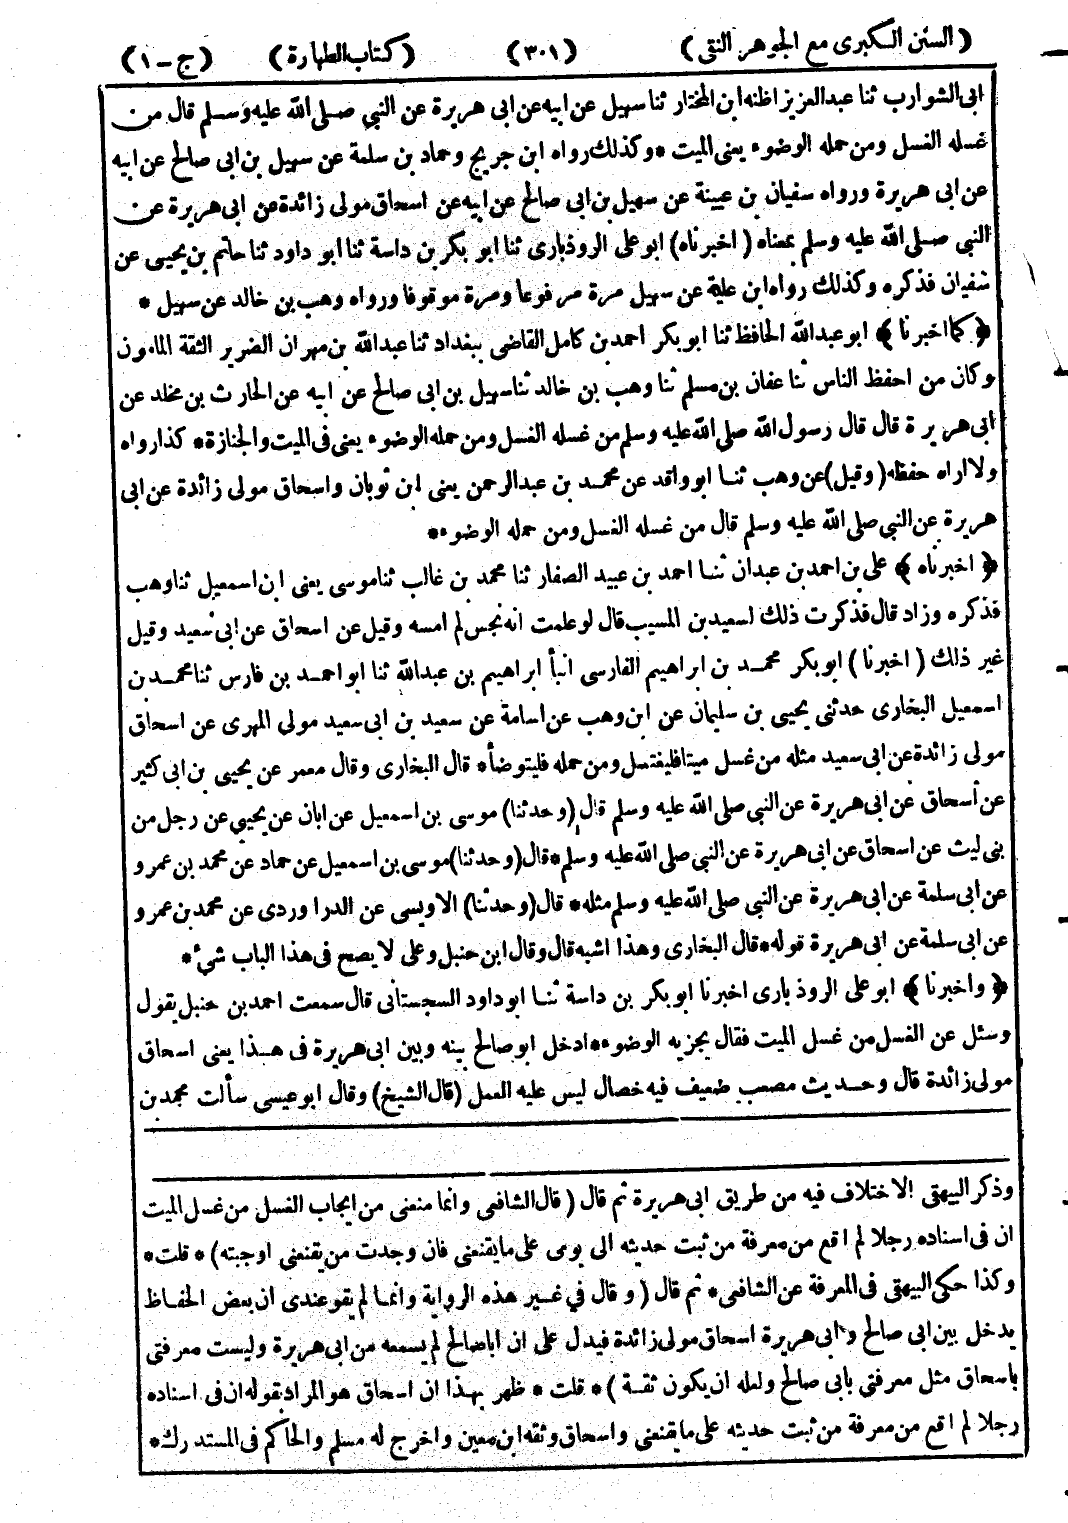 (السنن الكبرى مع الجوهر النقى) (٣٠١) (كتاب الطهارة) (ج - ١)
ابى الشوارب ثنا عبدالعزيز اظنه ابن المختار ثنا سهيل عن ابيه عن ابى هريرة عن النبي صلى الله عليه وسلم قال من
غسله الغسل ومن حمله الوضوء يعنى الميت * وكذلك رواه ابن جريج وحماد بن سلمة عن سهيل بن ابى صالح عن ابيه
عن ابى هريرة ورواه سفيان بن عيينة عن سهيل بن ابى صالح عن ابيه عن اسحاق مولى زائدة عن ابى هريرة عن
النبي صلى الله عليه وسلم بمعناه (اخبرناه) ابو على الروذبارى ثنا ابو بكر بن داسة ثنا ابو داود ثنا حاتم بن يحيى عن
سفيان فذكره وكذلك رواه ابن علية عن سهيل مرة مرفوعا ومرة موقوفا ورواه وهب بن خالد عن سهيل *
﴿كما اخبرنا﴾ ابو عبدالله الحافظ ثنا ابو بكر احمد بن كامل القاضى ببغداد ثنا عبدالله بن مهران الضرير الثقة المامون
وكان من احفظ الناس ثنا عفان بن مسلم ثنا وهب بن خالد ثنا سهيل بن ابى صالح عن ابيه عن الحارث بن مخلد عن
ابى هريرة قال قال رسول الله صلى الله عليه وسلم من غسله الغسل ومن حمله الوضوء يعنى فى الميت والجنازة * كذا رواه
ولا اراه حفظه (وقيل) عن وهب ثنا ابو واقد عن محمد بن عبدالرحمن يعنى ابن ثوبان واسحاق مولى زائدة عن ابى
هريرة عن النبي صلى الله عليه وسلم قال من غسله الغسل ومن حمله الوضوء *
﴿اخبرناه﴾ على بن احمد بن عبدان ثنا احمد بن عبيد الصفار ثنا محمد بن غالب ثنا موسى يعنى ابن اسمعيل ثنا وهب
فذكره وزاد قال فذكرت ذلك لسعيد بن المسيب قال لو علمت انه نجس لم امسه وقيل عن اسحاق عن ابى سعيد وقيل
غير ذلك (اخبرنا) ابو بكر محمد بن ابراهيم الفارسى انبأ ابراهيم بن عبدالله ثنا ابو احمد بن فارس ثنا محمد بن
اسمعيل البخارى حدثنى يحيى بن سليمان عن ابن وهب عن اسامة عن سعيد بن ابى سعيد مولى المهرى عن اسحاق
مولى زائدة عن ابى سعيد مثله من غسل ميتا فليغتسل ومن حمله فليتوضأ * قال البخارى وقال معمر عن يحيى بن ابى كثير
عن أسحاق عن ابى هريرة عن النبي صلى الله عليه وسلم قال (وحدثنا) موسى بن اسمعيل عن ابان عن يحيى عن رجل من
بنى ليث عن اسحاق عن ابى هريرة عن النبي صلى الله عليه وسلم * قال (وحدثنا) موسى بن اسمعيل عن حماد عن محمد بن عمرو
عن ابى سلمة عن ابى هريرة عن النبي صلى الله عليه وسلم مثله * قال (وحدثنا) الاويسى عن الدراوردى عن محمد بن عمرو
عن ابى سلمة عن ابى هريرة قوله * قال البخارى وهذا اشبه قال وقال ابن حنبل وعلى لا يصح فى هذا الباب شئ *
﴿واخبرنا﴾ ابو على الروذبارى اخبرنا ابو بكر بن داسة ثنا ابو داود السجستانى قال سمعت احمد بن حنبل يقول
وسئل عن الغسل من غسل الميت فقال يجزيه الوضوء * ادخل ابو صالح بينه وبين ابى هريرة فى هذا يعنى اسحاق
مولى زائدة قال وحديث مصعب ضعيف فيه خصال ليس عليه العمل (قال الشيخ) وقال ابو عيسى سألت محمد بن
وذكر البيهقى الاختلاف فيه من طريق ابى هريرة ثم قال (قال الشافعى وانما منعنى من ايجاب الغسل من غسل الميت
ان فى اسناده رجلا لم اقع من معرفة من ثبت حديثه الى يومى على ما يقنعنى فان وجدت من يقنعنى اوجبته) * قلت *
وكذا حكى البيهقى فى المعرفة عن الشافعى * ثم قال (وقال في غير هذه الرواية وانما لم يقو عندى ان بعض الحفاظ
يدخل بين ابى صالح وابى هريرة اسحاق مولى زائدة فيدل على ان اباصالح لم يسمعه من ابى هريرة وليست معرفتى
باسحاق مثل معرفتى بابى صالح ولعله ان يكون ثقة) * قلت * ظهر بهذا ان اسحاق هو المراد بقوله ان فى اسناده
رجلا لم اقع من معرفة من ثبت حديثه على ما يقنعنى واسحاق وثقه ابن معين واخرج له مسلم والحاكم فى المستدرك *